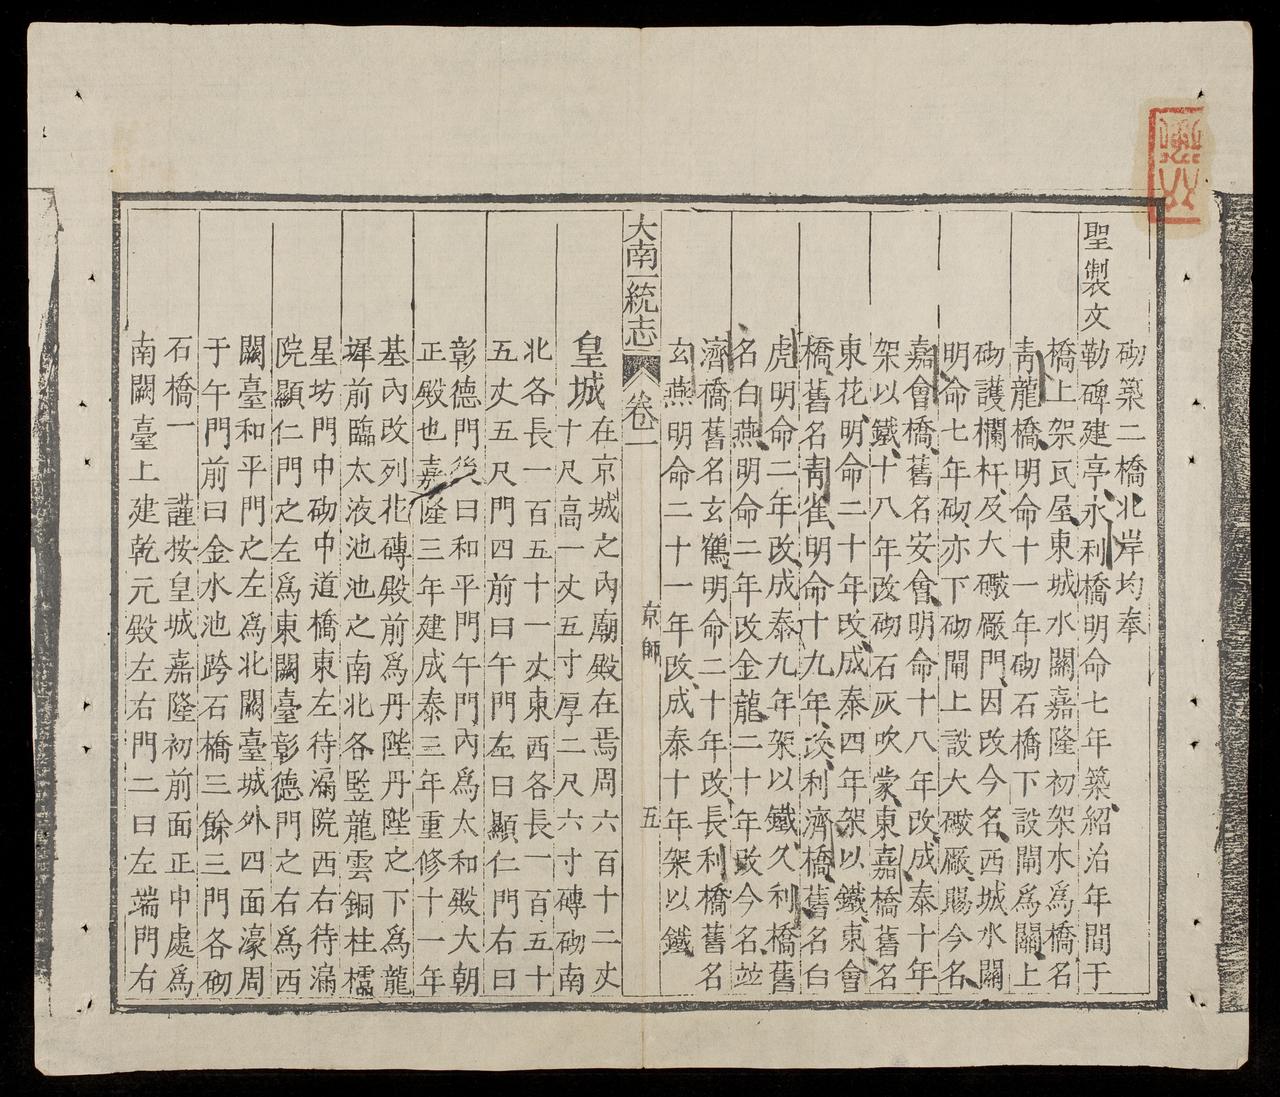 砌築二橋北岸均奉
聖製文勒碑建亭永利橋明命七年築紹治年間于
橋上架瓦屋東城水關嘉隆初架木爲橋名
靑龍橋明命十一年砌石橋下設閘爲關上
砌護欄杆及大礮厰門因改今名西城水關
明命七年砌亦下砌閘上設大礮厰賜今名
嘉會橋舊名安會明命十八年改成泰十年
架以鐵十八年改砌石灰吹蒙東嘉橋舊名
東花明命二十年改成泰四年架以鐵東會
橋舊名靑雀明命十九年改利濟橋舊名白
虎明命二年改成泰九年架以鐵久利橋舊
名白燕明命二年改金龍二十年改今名並
濟橋舊名玄鶴明命二十年改長利橋舊名
玄燕明命二十一年改成泰十年架以鐵
大南一統志 卷一 京師 五
皇城在京城之內廟殿在焉周六百十二丈
十尺高一丈五寸厚二尺六寸磚砌南
北各長一百五十一丈東西各長一百五十
五丈五尺門四前曰午門左曰顯仁門右曰
彰德門後曰和平門午門內爲太和殿大朝
正殿也嘉隆三年建成泰三年重修十一年
基內改列花磚殿前爲丹陛丹陛之下爲龍
墀前臨太液池池之南北各竪龍雲銅柱櫺
星坊門中砌中道橋東左待漏院西右待漏
院顯仁門之左爲東闕臺彰德門之右爲西
闕臺和平門之左爲北闕臺城外四面濠周
于午門前曰金水池跨石橋三餘三門各砌
石橋一 謹按皇城嘉隆初前面正中處爲
南闕臺上建乾元殿左右門二曰左端門右